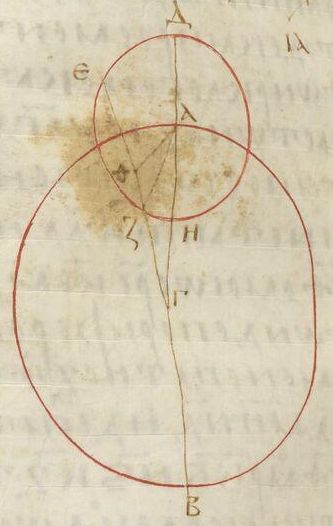 Δ
ΙΑ
Ε
Α
Θ
Ζ
Η
Γ
Β